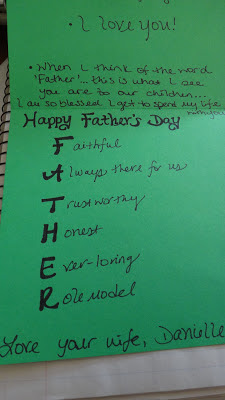 • I love you!
• When I think of the word
'Father'... this is what I see
you are to our children...
I am so blessed I get to spend my life
with you
Happy Father's Day
Faithful
Always there for us
Trustworthy
Honest
Ever-loving
Role model
Love your wife, Danielle